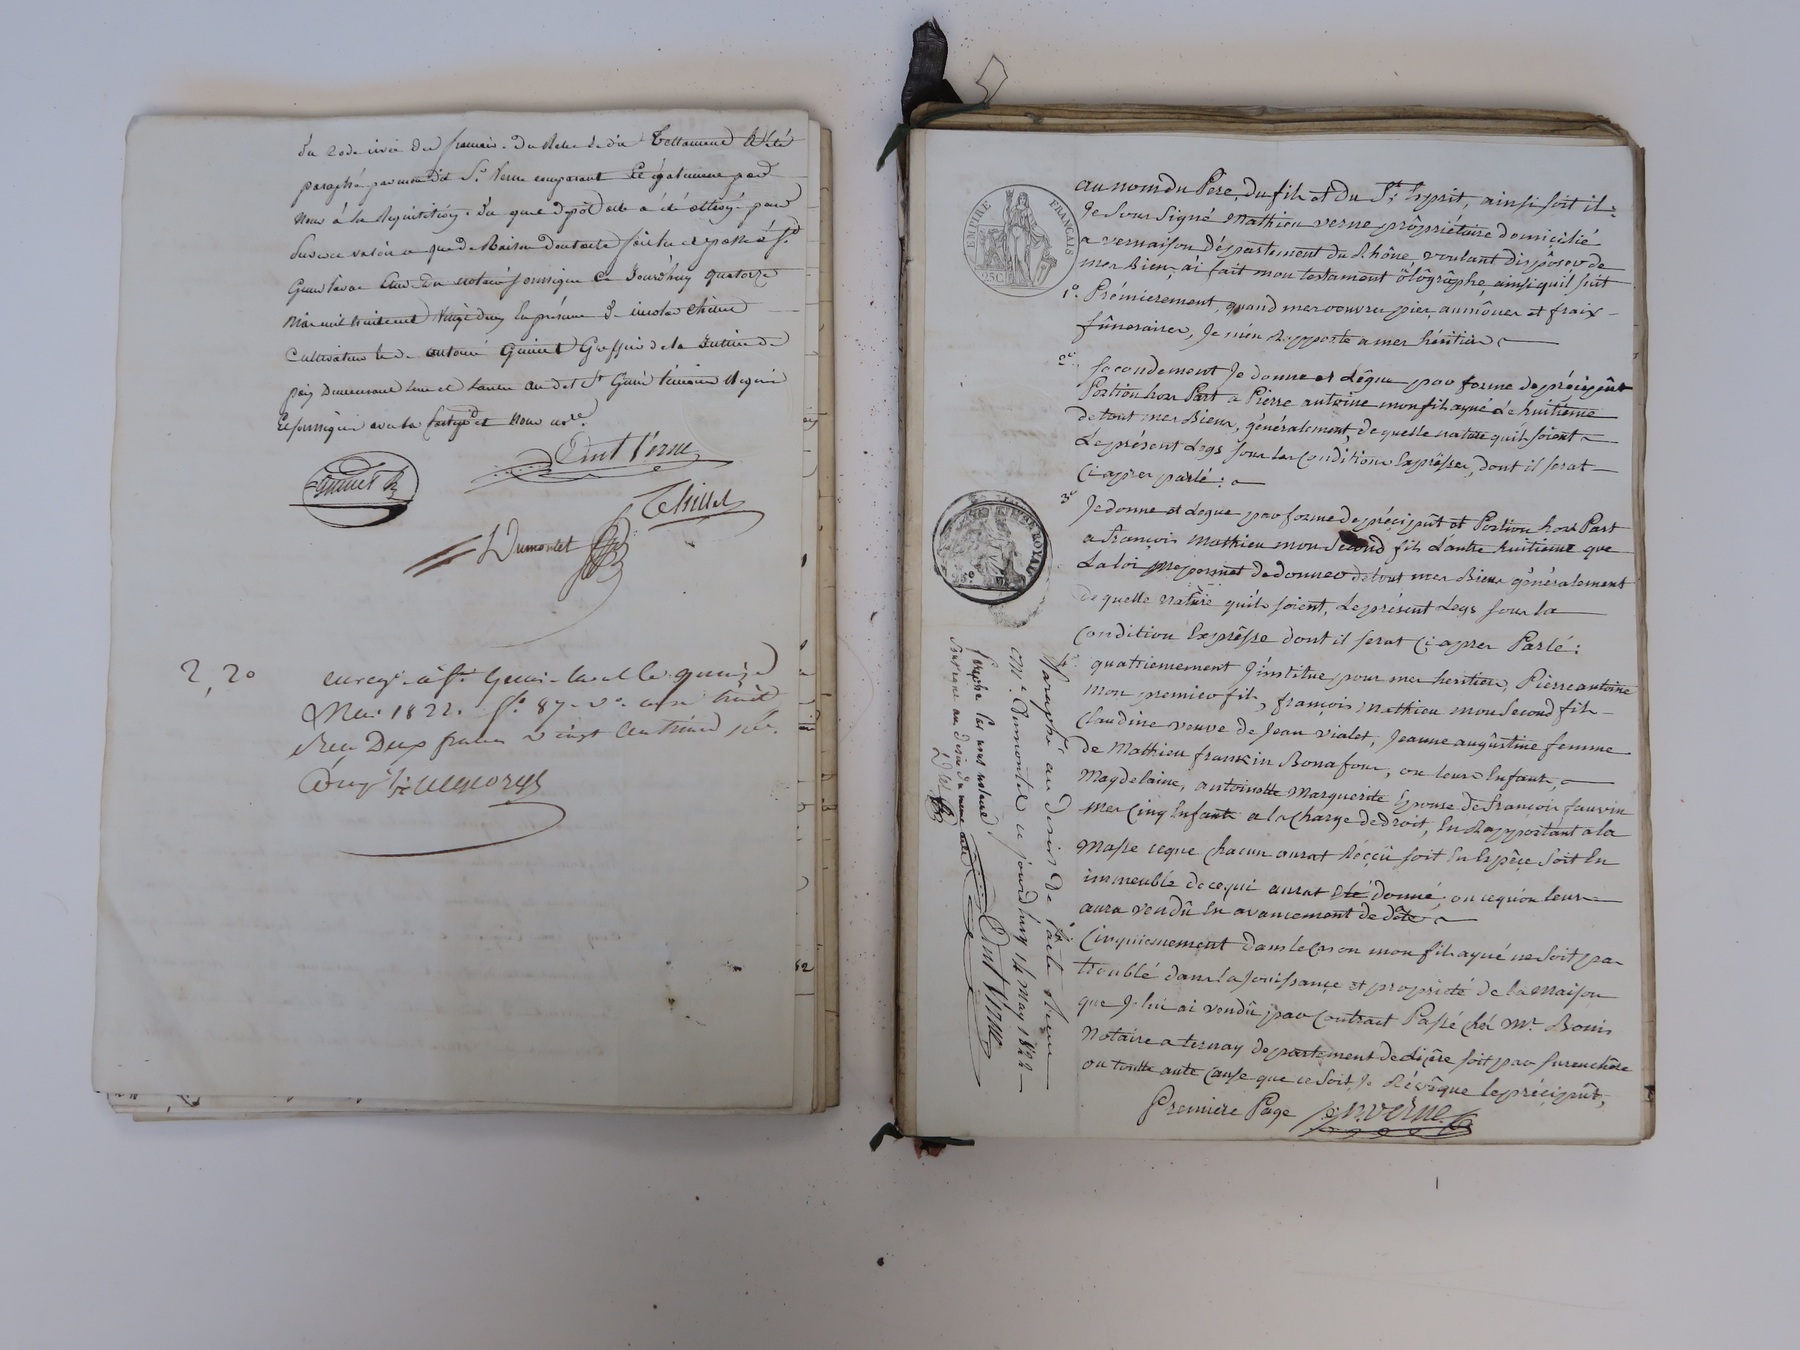 paraphé par mon dit Sr. Verne comparant Et également par
Nous à la Réquisition. du quel dépôt acte a été octroyé pour
Genis laval Etude du notaire soussigné Ce Jourdhuy quatorze
Mai mil huit cent vingt deux En présence de
Cultivateur et de antoine Guinet Greffier de la Justice de
paix demeurant l'un et l'autre au dit St Genis témoins requis
Et soussignés avec le et Nous nore.
Guinet
Aint Verne
Dumontet
2,20
enregé à St Genis laval le quinze
Mai 1822. fo. 87 vo. case
Reçu Deux francs vingt Centimes
EMPIRE FRANÇAIS
25C
au nom du Père, du fils et du St. Esprit, ainsi soit il.
Je Sous Signé Mathieu verne prôpriétaire domicilié
a vernaison département du Rhône, voulant dispôser de
mes Biens, ai fait mon testament ôlôgrâphe, ainsi quil suit
1o. Prémierement, quand mes oeuvres pies, aumônes et fraix
fûneraires, Je m'en Rapporte a mes hêritiers
2o. secondement Je donne et légue par forme de préciput
Portion hors Part a Pierre antoine mon fils ayné le huitième
de tout mes Biens, généralement, de quelle nature quils soient
Le présent Legs sous les Conditions Expresses, dont il serat
Ci apres parlé:
3o Je donne et legue par forme de préciput et Portion hors Part
a françois Mathieu mon Second fils L'autre huitieme que
La loi me permet de donner de tout mes Biens généralement
De quelle Nature quils soient, Le présent Legs sous la
Condition Expresse dont il serat Ci apres Parlé:
4o. quatriemement J'institue pour mes heritiers, Pierre antoine
mon premier fils, françois Mathieu mon Second fils
Claudine veuve de Jean vialet, Jeanne augustine femme
de Mathieu francin Bonafous, ou leurs Enfants,
Magdelaine, antoinette Marguerite Epouse de françois fauvin
mes Cinq Enfants a la Charge de droit, En Rapportant a la
Masse ceque chacun aurat Réçcû soit En Espèce Soit En
immeuble de cequi aurat été donné, ou cequon leurs
aura vendû En avancement de
Cinquiemement dans le Cas ou mon fils ayné ne Soit pa
troublé dans la Jouissance et propriété de la Maison
que Je lui ai vendû par Contract Passé chez Mr. Bonin
Notaire a ternay departement de Lizère soit par surenchêre
ou toutte autre Cause que ce Soit, Je Révôque le préciput,
Premiere Page Verne
Paraphé au désir de l'acte reçu
Me. Dumontet ce jourd'huy 14 May 1822
paraphé par nous notaire
soussigné au désir du meme acte
Aint Verne